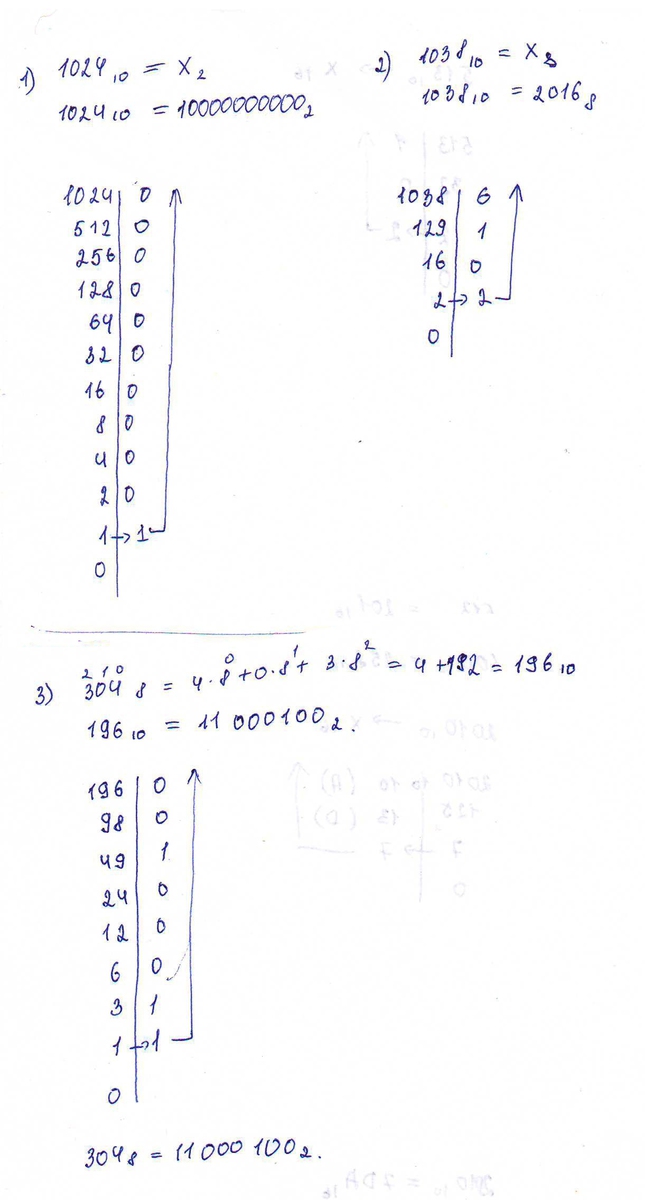 1) 1024₁₀ = X₂
1024₁₀ = 10000000000₂
1024 | 0
512 | 0
256 | 0
128 | 0
64 | 0
32 | 0
16 | 0
8 | 0
4 | 0
2 | 0
1 → 1
0
2) 1038₁₀ = X₈
1038₁₀ = 2016₈
1038 | 6
129 | 1
16 | 0
2 → 2
0
3) ²¹⁰
304₈ = 4·8⁰+0·8¹+ 3·8² = 4+192 = 196₁₀
196₁₀ = 11 000100₂.
196 | 0
98 | 0
49 | 1
24 | 0
12 | 0
6 | 0
3 | 1
1 → 1
0
304₈ = 11000 100₂.